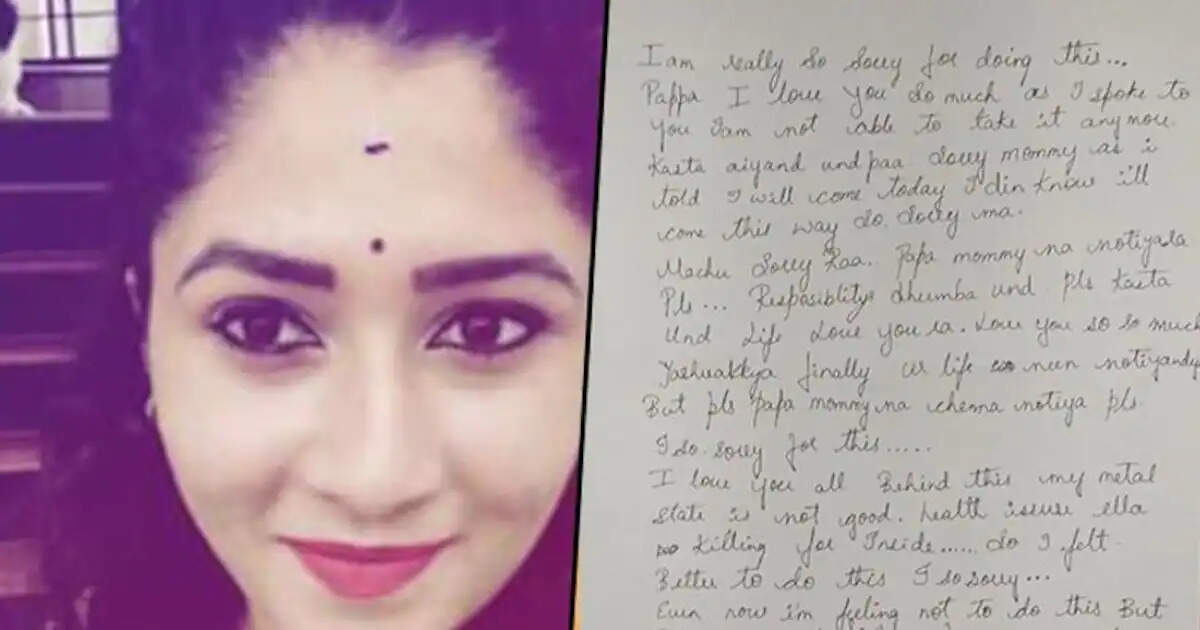 I am really so sorry for doing this...
Pappa I love you so much as I spoke to
you I am not able to take it anymore.
Kasta aiyand undpaa. Sorry mommy as i
told I will come today I din know i'll
come this way so. Sorry ma.
Machu Sorry Raa.. Papa mommy na notiyala
Pls... Resposiblitys dhumba und pls Kasta
Und Life Love you ra. Love you so so much
Yashuakkya finally ur life neen notiyandu
But pls papa mommy na chenna notiya pls.
I so. sorry for this.....
I love you all Behind this my metal
state is not good. health issuse ella
killing for Inside...... So I felt
Better to do this I so sorry...
Even now i'm feeling not to do this But